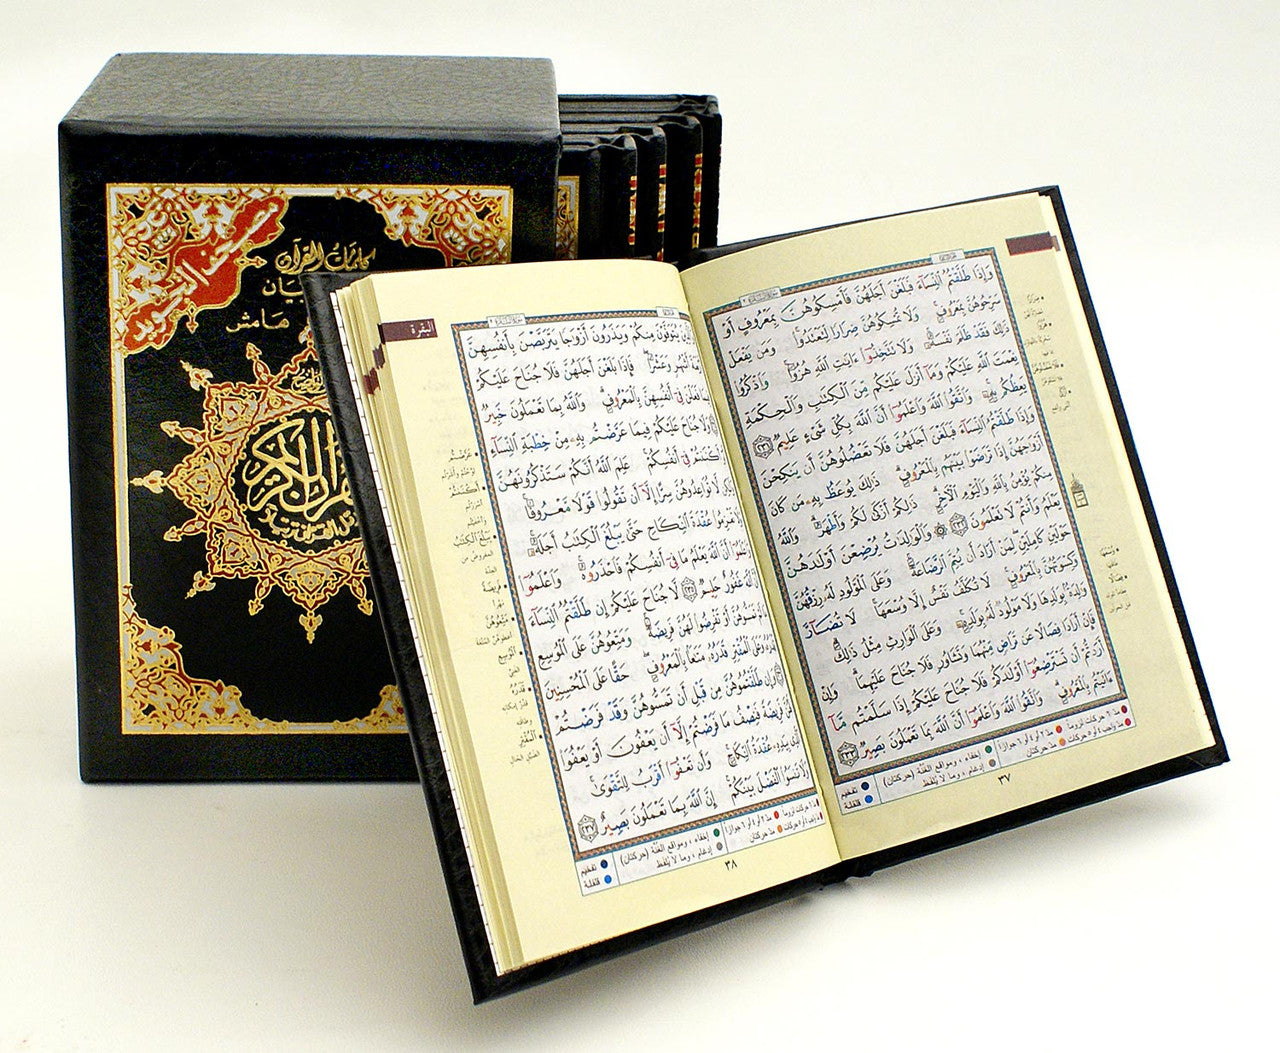 كلمات القرآن
القرآن الكريم
وَإِذَا طَلَّقْتُمُ ٱلنِّسَآءَ فَبَلَغْنَ أَجَلَهُنَّ فَأَمْسِكُوهُنَّ بِمَعْرُوفٍ أَوْ
سَرِّحُوهُنَّ بِمَعْرُوفٍ ۚ وَلَا تُمْسِكُوهُنَّ ضِرَارًا لِّتَعْتَدُوا۟ ۚ وَمَن يَفْعَلْ
ذَٰلِكَ فَقَدْ ظَلَمَ نَفْسَهُۥ ۚ وَلَا تَتَّخِذُوٓا۟ ءَايَٰتِ ٱللَّهِ هُزُوًا ۚ وَٱذْكُرُوا۟
نِعْمَتَ ٱللَّهِ عَلَيْكُمْ وَمَآ أَنزَلَ عَلَيْكُم مِّنَ ٱلْكِتَٰبِ وَٱلْحِكْمَةِ
يَعِظُكُم بِهِۦ ۚ وَٱتَّقُوا۟ ٱللَّهَ وَٱعْلَمُوٓا۟ أَنَّ ٱللَّهَ بِكُلِّ شَىْءٍ عَلِيمٌ ٢٣١
وَإِذَا طَلَّقْتُمُ ٱلنِّسَآءَ فَبَلَغْنَ أَجَلَهُنَّ فَلَا تَعْضُلُوهُنَّ أَن يَنكِحْنَ
أَزْوَٰجَهُنَّ إِذَا تَرَٰضَوْا۟ بَيْنَهُم بِٱلْمَعْرُوفِ ۗ ذَٰلِكَ يُوعَظُ بِهِۦ مَن كَانَ
مِنكُمْ يُؤْمِنُ بِٱللَّهِ وَٱلْيَوْمِ ٱلْءَاخِرِ ۗ ذَٰلِكُمْ أَزْكَىٰ لَكُمْ وَأَطْهَرُ ۗ وَٱللَّهُ
يَعْلَمُ وَأَنتُمْ لَا تَعْلَمُونَ ٢٣٢ ۞ وَٱلْوَٰلِدَٰتُ يُرْضِعْنَ أَوْلَٰدَهُنَّ
حَوْلَيْنِ كَامِلَيْنِ ۖ لِمَنْ أَرَادَ أَن يُتِمَّ ٱلرَّضَاعَةَ ۚ وَعَلَى ٱلْمَوْلُودِ لَهُۥ رِزْقُهُنَّ
وَكِسْوَتُهُنَّ بِٱلْمَعْرُوفِ ۚ لَا تُكَلَّفُ نَفْسٌ إِلَّا وُسْعَهَا ۚ لَا تُضَآرَّ
وَٰلِدَةٌۢ بِوَلَدِهَا وَلَا مَوْلُودٌ لَّهُۥ بِوَلَدِهِۦ ۚ وَعَلَى ٱلْوَارِثِ مِثْلُ ذَٰلِكَ ۗ
فَإِنْ أَرَادَا فِصَالًا عَن تَرَاضٍ مِّنْهُمَا وَتَشَاوُرٍ فَلَا جُنَاحَ عَلَيْهِمَا ۗ وَإِنْ
أَرَدتُّمْ أَن تَسْتَرْضِعُوٓا۟ أَوْلَٰدَكُمْ فَلَا جُنَاحَ عَلَيْكُمْ إِذَا سَلَّمْتُم مَّآ
ءَاتَيْتُم بِٱلْمَعْرُوفِ ۗ وَٱتَّقُوا۟ ٱللَّهَ وَٱعْلَمُوٓا۟ أَنَّ ٱللَّهَ بِمَا تَعْمَلُونَ بَصِيرٌ ٢٣٣
مد ٦ حركات لزوماً مد ٢ أو ٤ أو ٦ جوازاً إخفاء ، ومواقع الغنة (حركتان) تفخيم
مد واجب ٤ أو ٥ حركات مد حركتان إدغام ، وما لا يُلفظ قلقلة
٣٧
البقرة
يُتَوَفَّوْنَ مِنكُمْ وَيَذَرُونَ أَزْوَٰجًا يَتَرَبَّصْنَ بِأَنفُسِهِنَّ
أَشْهُرٍ وَعَشْرًا ۖ فَإِذَا بَلَغْنَ أَجَلَهُنَّ فَلَا جُنَاحَ عَلَيْكُمْ
فِيمَا فَعَلْنَ فِىٓ أَنفُسِهِنَّ بِٱلْمَعْرُوفِ ۗ وَٱللَّهُ بِمَا تَعْمَلُونَ خَبِيرٌ
وَلَا جُنَاحَ عَلَيْكُمْ فِيمَا عَرَّضْتُم بِهِۦ مِنْ خِطْبَةِ ٱلنِّسَآءِ
أَوْ أَكْنَنتُمْ فِىٓ أَنفُسِكُمْ ۚ عَلِمَ ٱللَّهُ أَنَّكُمْ سَتَذْكُرُونَهُنَّ
وَلَٰكِن لَّا تُوَاعِدُوهُنَّ سِرًّا إِلَّآ أَن تَقُولُوا۟ قَوْلًا مَّعْرُوفًا ۚ
وَلَا تَعْزِمُوا۟ عُقْدَةَ ٱلنِّكَاحِ حَتَّىٰ يَبْلُغَ ٱلْكِتَٰبُ أَجَلَهُۥ ۚ
وَٱعْلَمُوٓا۟ أَنَّ ٱللَّهَ يَعْلَمُ مَا فِىٓ أَنفُسِكُمْ فَٱحْذَرُوهُ ۚ وَٱعْلَمُوٓا۟
أَنَّ ٱللَّهَ غَفُورٌ حَلِيمٌ ٢٣٥ لَّا جُنَاحَ عَلَيْكُمْ إِن طَلَّقْتُمُ ٱلنِّسَآءَ
مَا لَمْ تَمَسُّوهُنَّ أَوْ تَفْرِضُوا۟ لَهُنَّ فَرِيضَةً ۚ وَمَتِّعُوهُنَّ عَلَى ٱلْمُوسِعِ
قَدَرُهُۥ وَعَلَى ٱلْمُقْتِرِ قَدَرُهُۥ مَتَٰعًۢا بِٱلْمَعْرُوفِ ۖ حَقًّا عَلَى ٱلْمُحْسِنِينَ
وَإِن طَلَّقْتُمُوهُنَّ مِن قَبْلِ أَن تَمَسُّوهُنَّ وَقَدْ فَرَضْتُمْ
لَهُنَّ فَرِيضَةً فَنِصْفُ مَا فَرَضْتُمْ إِلَّآ أَن يَعْفُونَ أَوْ يَعْفُوَا۟
ٱلَّذِى بِيَدِهِۦ عُقْدَةُ ٱلنِّكَاحِ ۚ وَأَن تَعْفُوٓا۟ أَقْرَبُ لِلتَّقْوَىٰ ۚ
وَلَا تَنسَوُا۟ ٱلْفَضْلَ بَيْنَكُمْ ۚ إِنَّ ٱللَّهَ بِمَا تَعْمَلُونَ بَصِيرٌ ٢٣٧
مد ٦ حركات لزوماً مد ٢ أو ٤ أو ٦ جوازاً إخفاء ، ومواقع الغنة (حركتان) تفخيم
مد حركتان إدغام ، وما لا يُلفظ قلقلة
٣٨